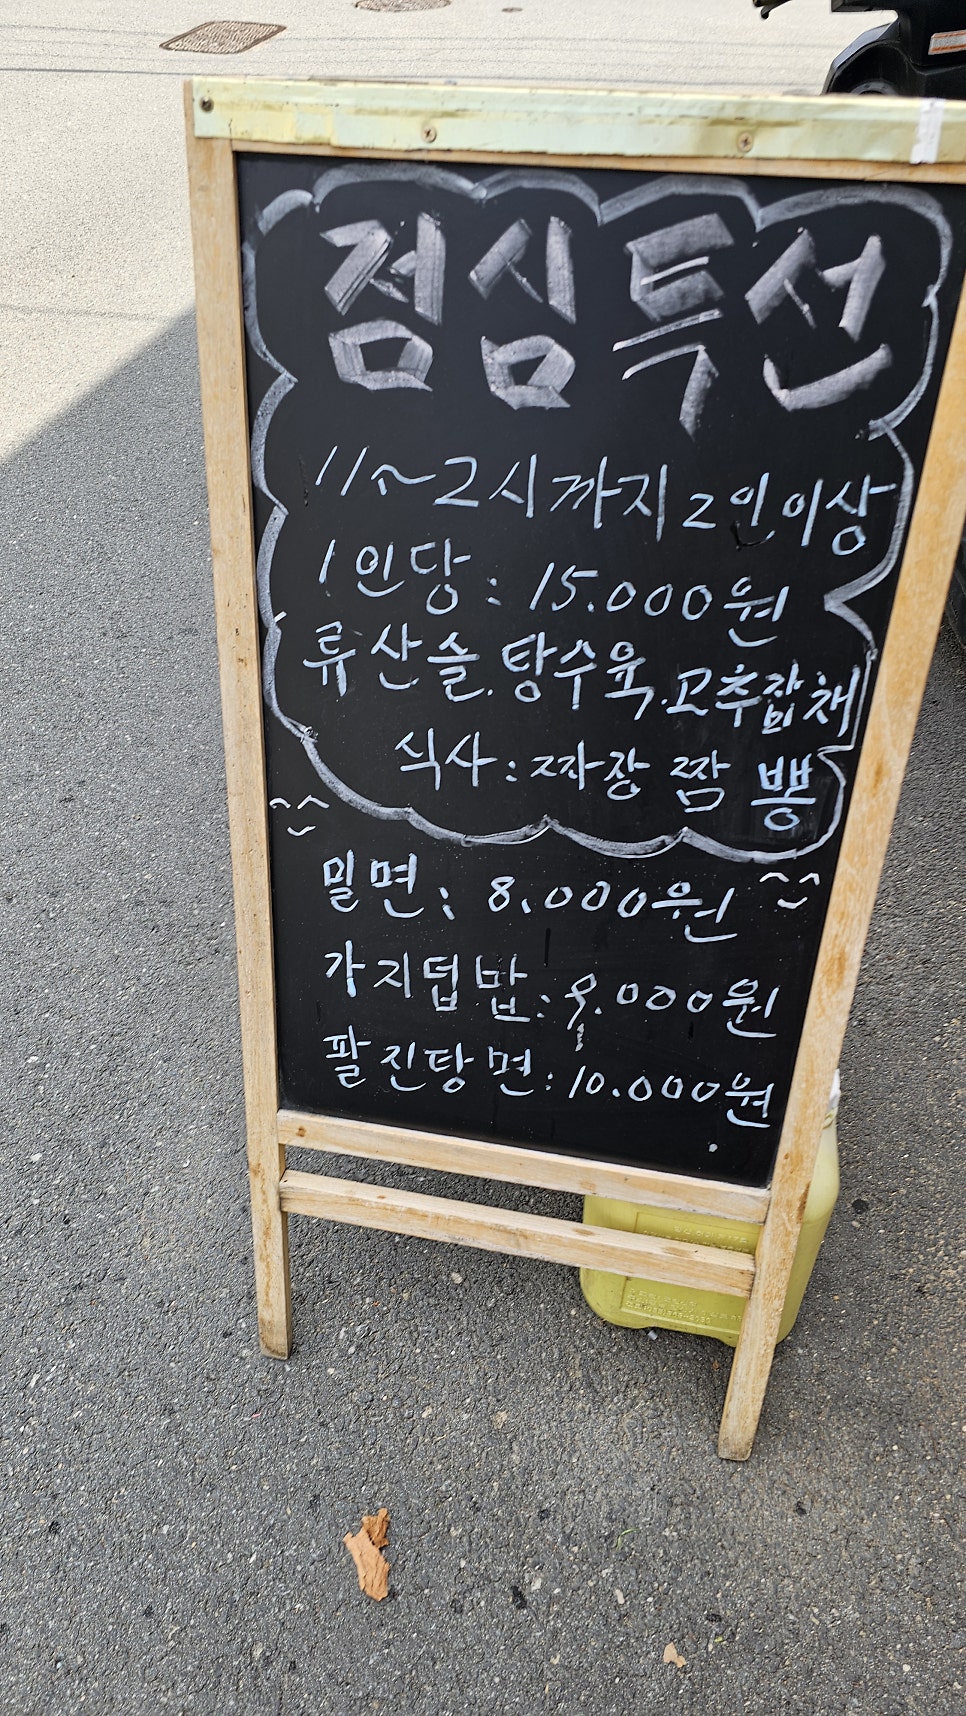 점심특선
11~2시까지 2인이상
1인당: 15.000원
류산슬. 탕수육. 고추잡채
식사: 짜장 짬뽕
밀면: 8.000원
가지덥밥: 9.000원
팔진탕면: 10.000원